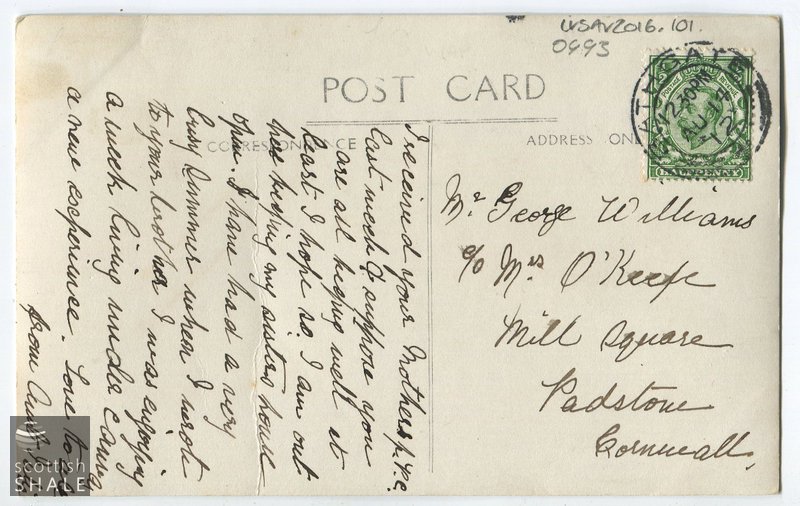 LVSAV2016.101.
0993
POST CARD
CORRESPONDENCE
ADDRESS ON
BATHGATE
12-40PM
AU 14
12
I received your Mothers p.p.c.
last week & suppose you
are all keeping well at
least I hope so. I am out
here keeping my sisters house
open. I have had a very
busy Summer when I wrote
to your brother I was enjoying
a week living under canvas
a new experience. Love to all
from Aunt
Mr George Williams
c/o Mrs O'Keefe
Mill Square
Padstow
Cornwall.
scottish
SHALE